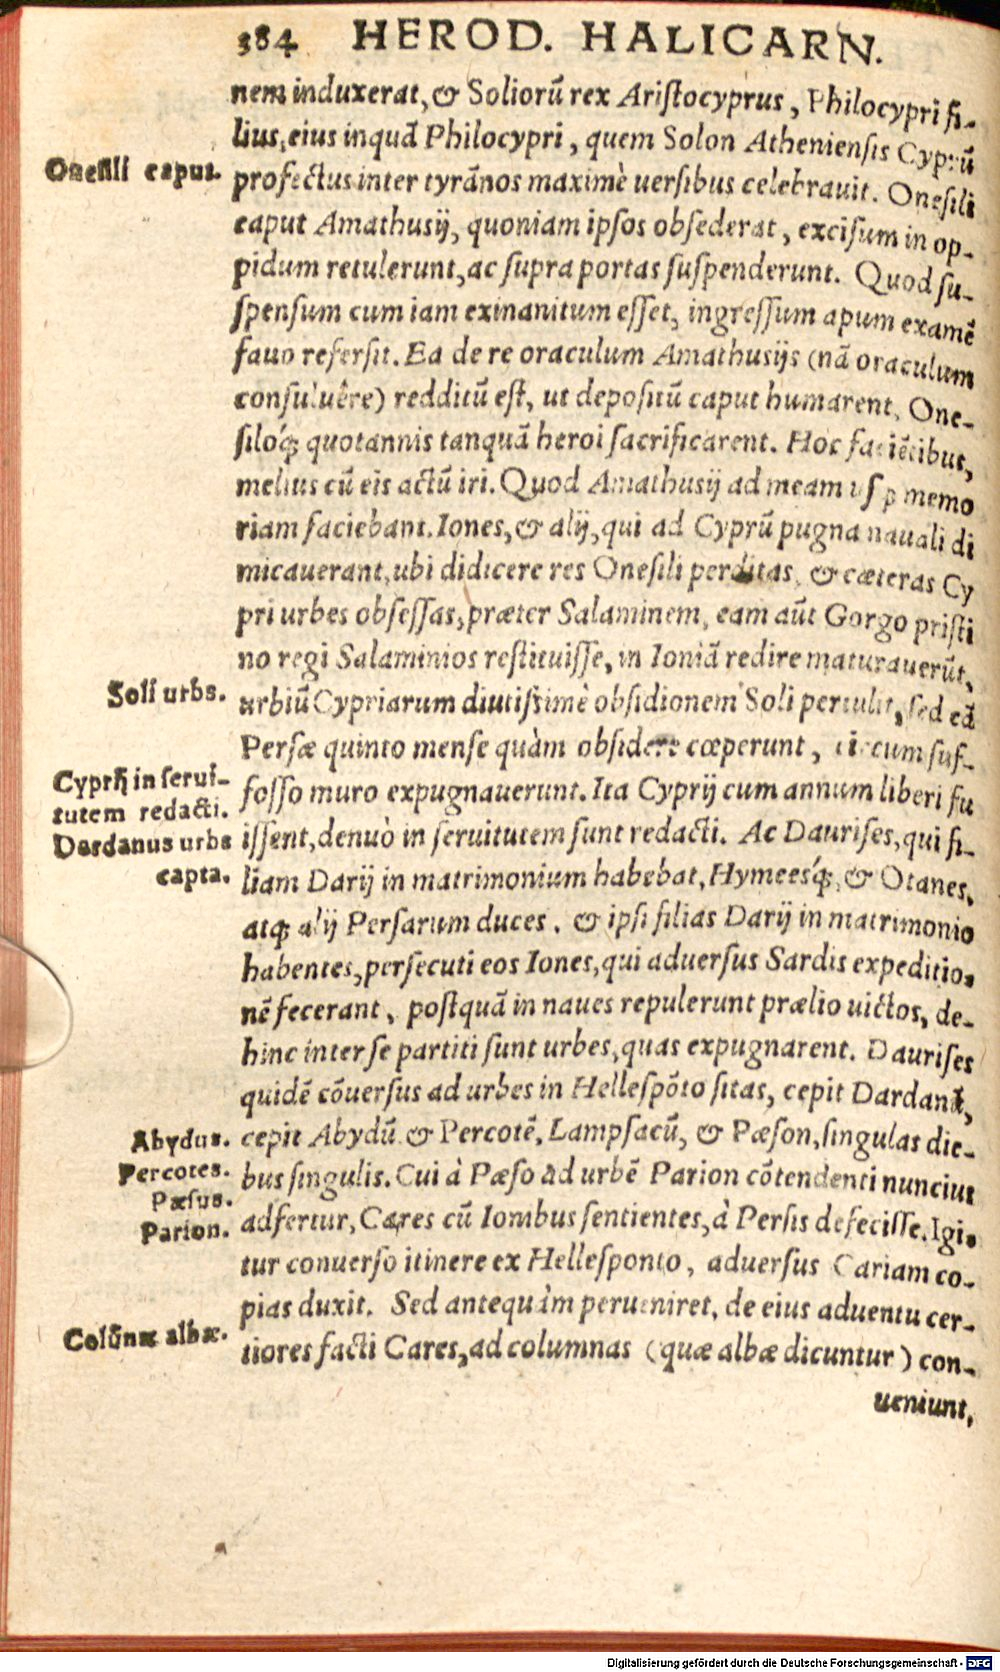 384 HEROD. HALICARN.
nem induxerat, & Soliorũ rex Ariſtocyprus, Philocypri fi-
lius, eius inquã Philocypri, quem Solon Athenienſis Cyprũ
Oneſili caput.
profectus inter tyrãnos maximè uerſibus celebrauit. Oneſili
caput Amathusij, quoniam ipſos obſederat, exciſum in op-
pidum retulerunt, ac ſupra portas ſuſpenderunt. Quod ſu-
ſpenſum cum iam exinanitum eſſet, ingreſſum apum examẽ
fauo referſit. Ea de re oraculum Amathusijs (nã oraculum
conſuluêre) redditũ eſt, ut depoſitũ caput humarent, One-
ſiloq́; quotannis tanquã heroi ſacrificarent. Hoc faciẽtibus,
melius cũ eis actũ iri. Quod Amathusij ad meam uſq; memo
riam faciebant. Iones, & alij, qui ad Cyprũ pugna nauali di
micauerant, ubi didicere res Oneſili perditas, & cæteras Cy
pri urbes obſeſſas, præter Salaminem, eam aũt Gorgo priſti
no regi Salaminios reſtituiſſe, in Ioniã redire maturauerũt,
Soli urbs.
urbiũ Cypriarum diutiſsimè obſidionem Soli pertulit, ſed eã
Perſæ quinto menſe quàm obſidere cœperunt, circum ſuf-
Cyprij in ſerui-
foſſo muro expugnauerunt. Ita Cyprij cum annum liberi fu
tutem redacti.
Dardanus urbs
iſſent, denuò in ſeruitutem ſunt redacti. Ac Dauriſes, qui fi-
capta.
liam Darij in matrimonium habebat, Hymeesq́;, & Otanes,
atq; alij Perſarum duces, & ipſi filias Darij in matrimonio
habentes, perſecuti eos Iones, qui aduerſus Sardis expeditio-
nẽ fecerant, poſtquã in naues repulerunt prælio uictos, de-
hinc inter ſe partiti ſunt urbes, quas expugnarent. Dauriſes
quidẽ cõuerſus ad urbes in Helleſpõto ſitas, cepit Dardanũ,
Abydus.
cepit Abydũ & Percotẽ, Lampſacũ, & Pæſon, ſingulas die-
Percotes.
bus ſingulis. Cui à Pæſo ad urbẽ Parion cõtendenti nuncius
Pæſus.
Parion.
adfertur, Cares cũ Ionibus ſentientes, à Perſis defeciſſe. Igi-
tur conuerſo itinere ex Helleſponto, aduerſus Cariam co-
pias duxit. Sed antequàm perueniret, de eius aduentu cer-
Colũnæ albæ.
tiores facti Cares, ad columnas (quæ albæ dicuntur) con-
ueniunt,
Digitalisierung gefördert durch die Deutsche Forschungsgemeinschaft - DFG